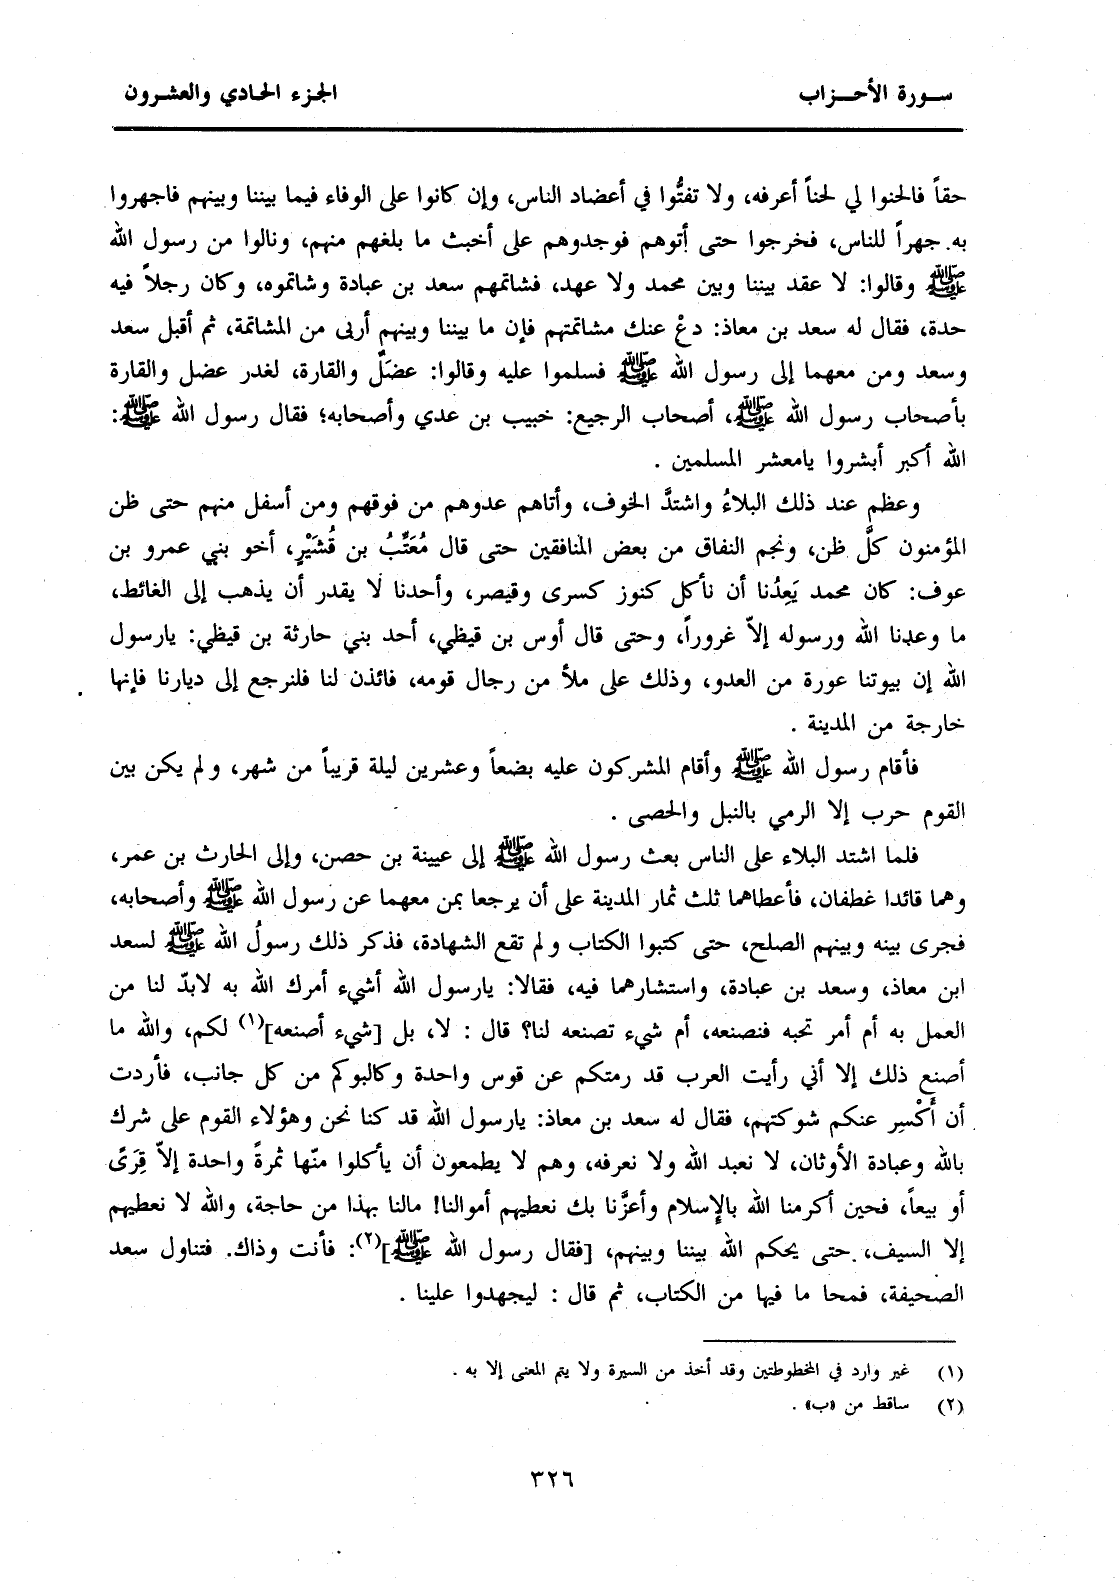 سـورة الأحـزاب
الجزء الحادي والعشرون
حقاً فالحنوا لي لحناً أعرفه، ولا تفتُّوا في أعضاد الناس، وإن كانوا على الوفاء فيما بيننا وبينهم فاجهروا
به جهراً للناس، فخرجوا حتى أتوهم فوجدوهم على أخبث ما بلغهم منهم، ونالوا من رسول الله
ﷺ وقالوا: لا عقد بيننا وبين محمد ولا عهد، فشاتمهم سعد بن عبادة وشاتموه، وكان رجلاً فيه
حدة، فقال له سعد بن معاذ: دعْ عنك مشاتمتهم فإن ما بيننا وبينهم أربى من المشاتمة، ثم أقبل سعد
وسعد ومن معهما إلى رسول الله ﷺ فسلموا عليه وقالوا: عضَلٌ والقارة، لغدر عضل والقارة
بأصحاب رسول الله ﷺ، أصحاب الرجيع: خبيب بن عدي وأصحابه؛ فقال رسول الله ﷺ:
الله أكبر أبشروا يامعشر المسلمين .
وعظم عند ذلك البلاءُ واشتدَّ الخوف، وأتاهم عدوهم من فوقهم ومن أسفل منهم حتى ظن
المؤمنون كلَّ ظن، ونجم النفاق من بعض المنافقين حتى قال مُعَتِّبُ بن قُشَيْرٍ، أخو بني عمرو بن
عوف: كان محمد يَعِدُنا أن نأكل كنوز كسرى وقيصر، وأحدنا لا يقدر أن يذهب إلى الغائط،
ما وعدنا الله ورسوله إلاّ غروراً، وحتى قال أوس بن قيظي، أحد بني حارثة بن قيظي: يارسول
الله إن بيوتنا عورة من العدو، وذلك على ملأ من رجال قومه، فائذن لنا فلنرجع إلى ديارنا فإنها
خارجة من المدينة .
فأقام رسول الله ﷺ وأقام المشركون عليه بضعاً وعشرين ليلة قريباً من شهر، ولم يكن بين
القوم حرب إلا الرمي بالنبل والحصى .
فلما اشتد البلاء على الناس بعث رسول الله ﷺ إلى عيينة بن حصن، وإلى الحارث بن عمر،
وهما قائدا غطفان، فأعطاهما ثلث ثمار المدينة على أن يرجعا بمن معهما عن رسول الله ﷺ وأصحابه،
فجرى بينه وبينهم الصلح، حتى كتبوا الكتاب ولم تقع الشهادة، فذكر ذلك رسولُ الله ﷺ لسعد
ابن معاذ، وسعد بن عبادة، واستشارهما فيه، فقالا: يارسول الله أشيء أمرك الله به لابدّ لنا من
العمل به أم أمر تحبه فنصنعه، أم شيء تصنعه لنا؟ قال : لا، بل [شيء أصنعه](١) لكم، والله ما
أصنع ذلك إلا أني رأيت العرب قد رمتكم عن قوس واحدة وكالبوكم من كل جانب، فأردت
أن أَكْسِر عنكم شوكتهم، فقال له سعد بن معاذ: يارسول الله قد كنا نحن وهؤلاء القوم على شرك
بالله وعبادة الأوثان، لا نعبد الله ولا نعرفه، وهم لا يطمعون أن يأكلوا منّها ثمرةً واحدة إلاّ قِرَىً
أو بيعاً، فحين أكرمنا الله بالإسلام وأعزَّنا بك نعطيهم أموالنا! مالنا بهذا من حاجة، والله لا نعطيهم
إلا السيف، حتى يحكم الله بيننا وبينهم، [فقال رسول الله ﷺ](٢): فأنت وذاك. فتناول سعد
الصحيفة، فمحا ما فيها من الكتاب، ثم قال : ليجهدوا علينا .
(١) غير وارد في المخطوطتين وقد أخذ من السيرة ولا يتم المعنى إلا به .
(٢) ساقط من «ب» .
٣٢٦